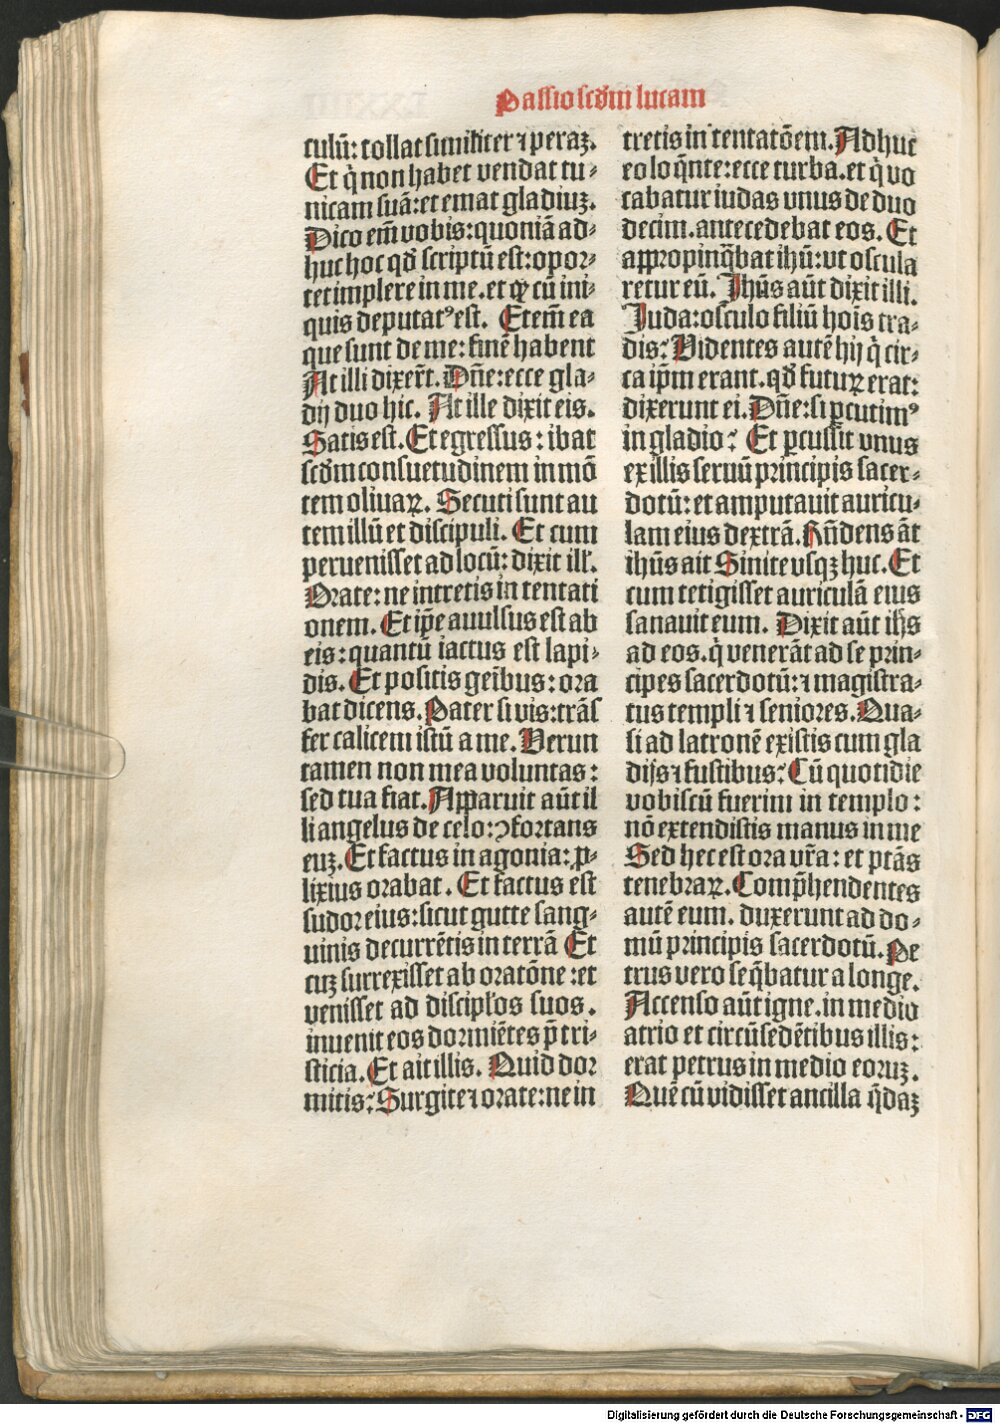 Passio scdm lucam
culū: tollat similiter ⁊ peraꝫ.
Et q̇ non habet vendat tu-
nicam suā: et emat gladiuꝫ.
Dico em̄ vobis: quoniā ad-
huc hoc qd̄ scriptū est: opor-
tet implere in me. et ꝙ cū ini-
quis deputatꝰ est. Etem̄ ea
que sunt de me: finē habent
At illi dixerūt. Dn̄e: ecce gla-
dij duo hic. At ille dixit eis.
Satis est. Et egressus: ibat
scdm consuetudinem in mō
tem oliuaꝝ. Secuti sunt au
tem illū et discipuli. Et cum
peruenisset ad locū: dixit ill̓.
Orate: ne intretis in tentati
onem. Et ip̄e auulsus est ab
eis: quantū iactus est lapi-
dis. Et positis gen̄ibus: ora
bat dicens. Pater si vis: trās
fer calicem istū a me. Verun
tamen non mea voluntas:
sed tua fiat. Apparuit aūt il
li angelus de celo: ↄfortans
euꝫ. Et factus in agonia: ꝓ-
lixius orabat. Et factus est
sudor eius: sicut gutte sang-
uinis decurrētis in terrā Et
cuꝫ surrexisset ab oratōne: et
venisset ad discipl̓os suos.
inuenit eos dormiētes p̄ tri-
sticia. Et ait illis. Quid dor
mitis? Surgite ⁊ orate: ne in
tretis in tentatōem. Adhuc
eo loq̄nte: ecce turba. et q̇ vo
cabatur iudas vnus de duo
decim. antecedebat eos. Et
appropinq̄bat ihū: vt oscula
retur eū. Ihūs aūt dixit illi.
Iuda: osculo filiū hoīs tra-
dis? Videntes autē hij q̇ cir-
ca ip̄m erant. qd̄ futuꝝ erat:
dixerunt ei. Dn̄e: si ꝑcutimꝰ
in gladio? Et ꝑcussit vnus
ex illis seruū principis sacer-
dotū: et amputauit auricu-
lam eius dextrā. Rn̄dens āt
ihūs ait Sinite vsqꝫ huc. Et
cum tetigisset auriculā eius
sanauit eum. Dixit aūt ihs̄
ad eos. q̇ venerāt ad se prin-
cipes sacerdotū: ⁊ magistra-
tus templi ⁊ seniores. Qua-
si ad latronē existis cum gla
dijs ⁊ fustibus? Cū quotidie
vobiscū fuerim in templo:
nō extendistis manus in me
Sed hec est ora vr̄a: et ptās
tenebraꝝ. Comp̄hendentes
autē eum. duxerunt ad do-
mū principis sacerdotū. Pe
trus vero seq̄batur a longe.
Accenso aūt igne. in medio
atrio et circūsedētibus illis:
erat petrus in medio eoruꝫ.
Quē cū vidisset ancilla q̄daꝫ
Digitalisierung gefördert durch die Deutsche Forschungsgemeinschaft - DFG